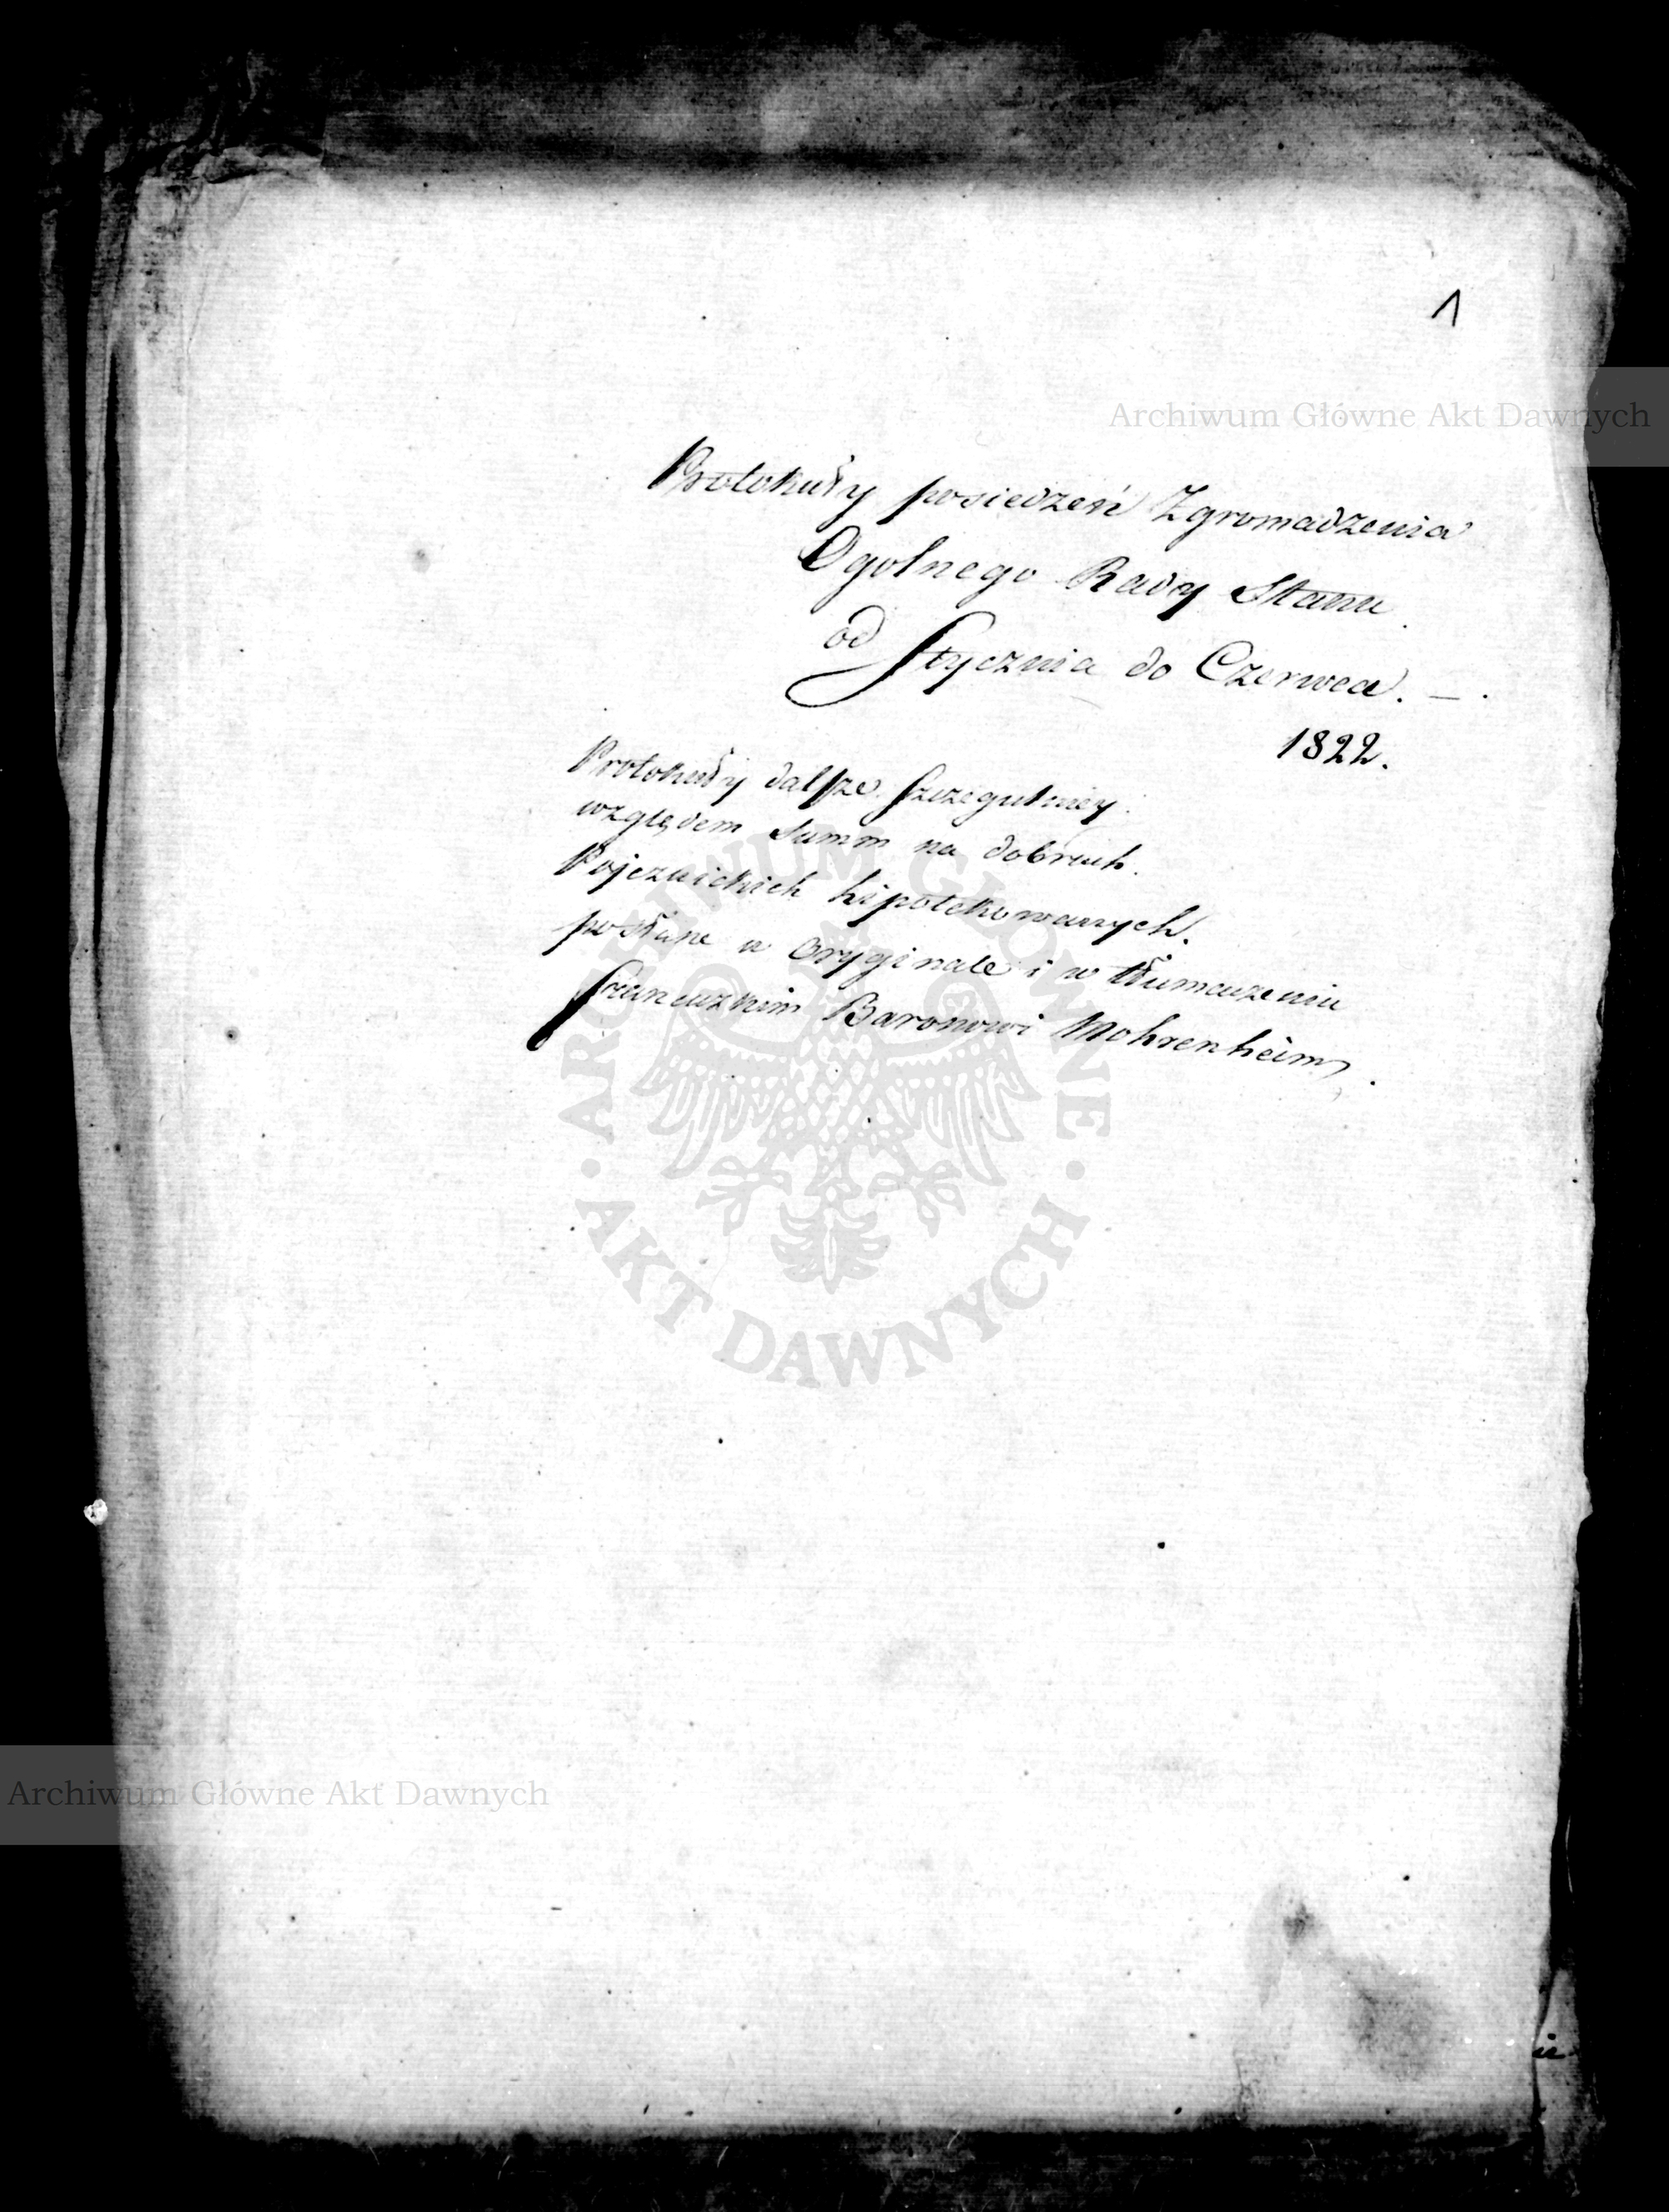 1
Archiwum Główne Akt Dawnych
Protokuły posiedzeń Zgromadzenia
Ogolnego Rady Stanu
od Stycznia do Czerwca. —.
1822.
Protokuły dalsze szczegulniey
względem Summ na dobrach
Pojezuickich hipotekowanych.
posłane w Oryginale i w tłumaczeniu
francuzkim Baronowi Mohrenheim.
ARCHIWUM GŁÓWNE
AKT DAWNYCH
Archiwum Główne Akt Dawnych